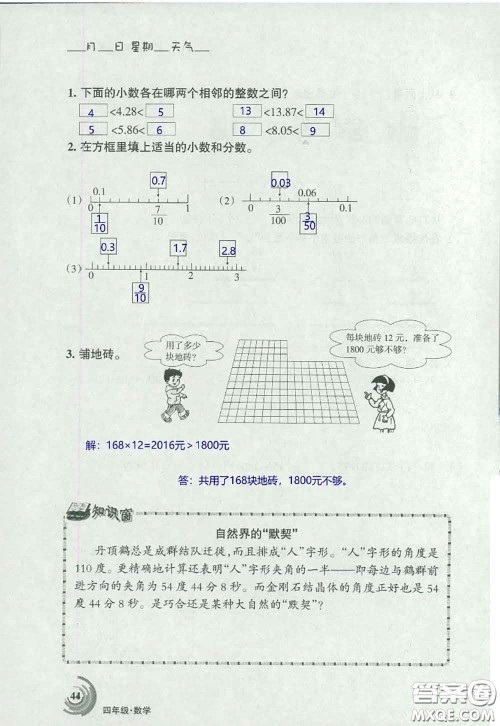 月 日 星期 天气
1. 下面的小数各在哪两个相邻的整数之间?
4 <4.28< 5 13 <13.87< 14
5 <5.86< 6 8 <8.05< 9
2. 在方框里填上适当的小数和分数。
0.1 0.7 0.03 0.06
(1) 0 7/10 1 (2) 0 3/100 0.1
1/10 3/50
0.3 1.7 2.8
(3) 0 1 2 3
9/10
3. 铺地砖。
用了多少
块地砖?
每块地砖 12 元,准备了
1800 元够不够?
解:168×12=2016元>1800元
答:共用了168块地砖,1800元不够。
知识窗
自然界的“默契”
丹顶鹤总是成群结队迁徙,而且排成“人”字形。“人”字形的角度是
110 度。更精确地计算还表明“人”字形夹角的一半——即每边与鹤群前
进方向的夹角为 54 度 44 分 8 秒。而金刚石结晶体的角度正好也是 54
度 44 分 8 秒。是巧合还是某种大自然的“默契”?
44
四年级·数学
答案圈
MXQE.COM